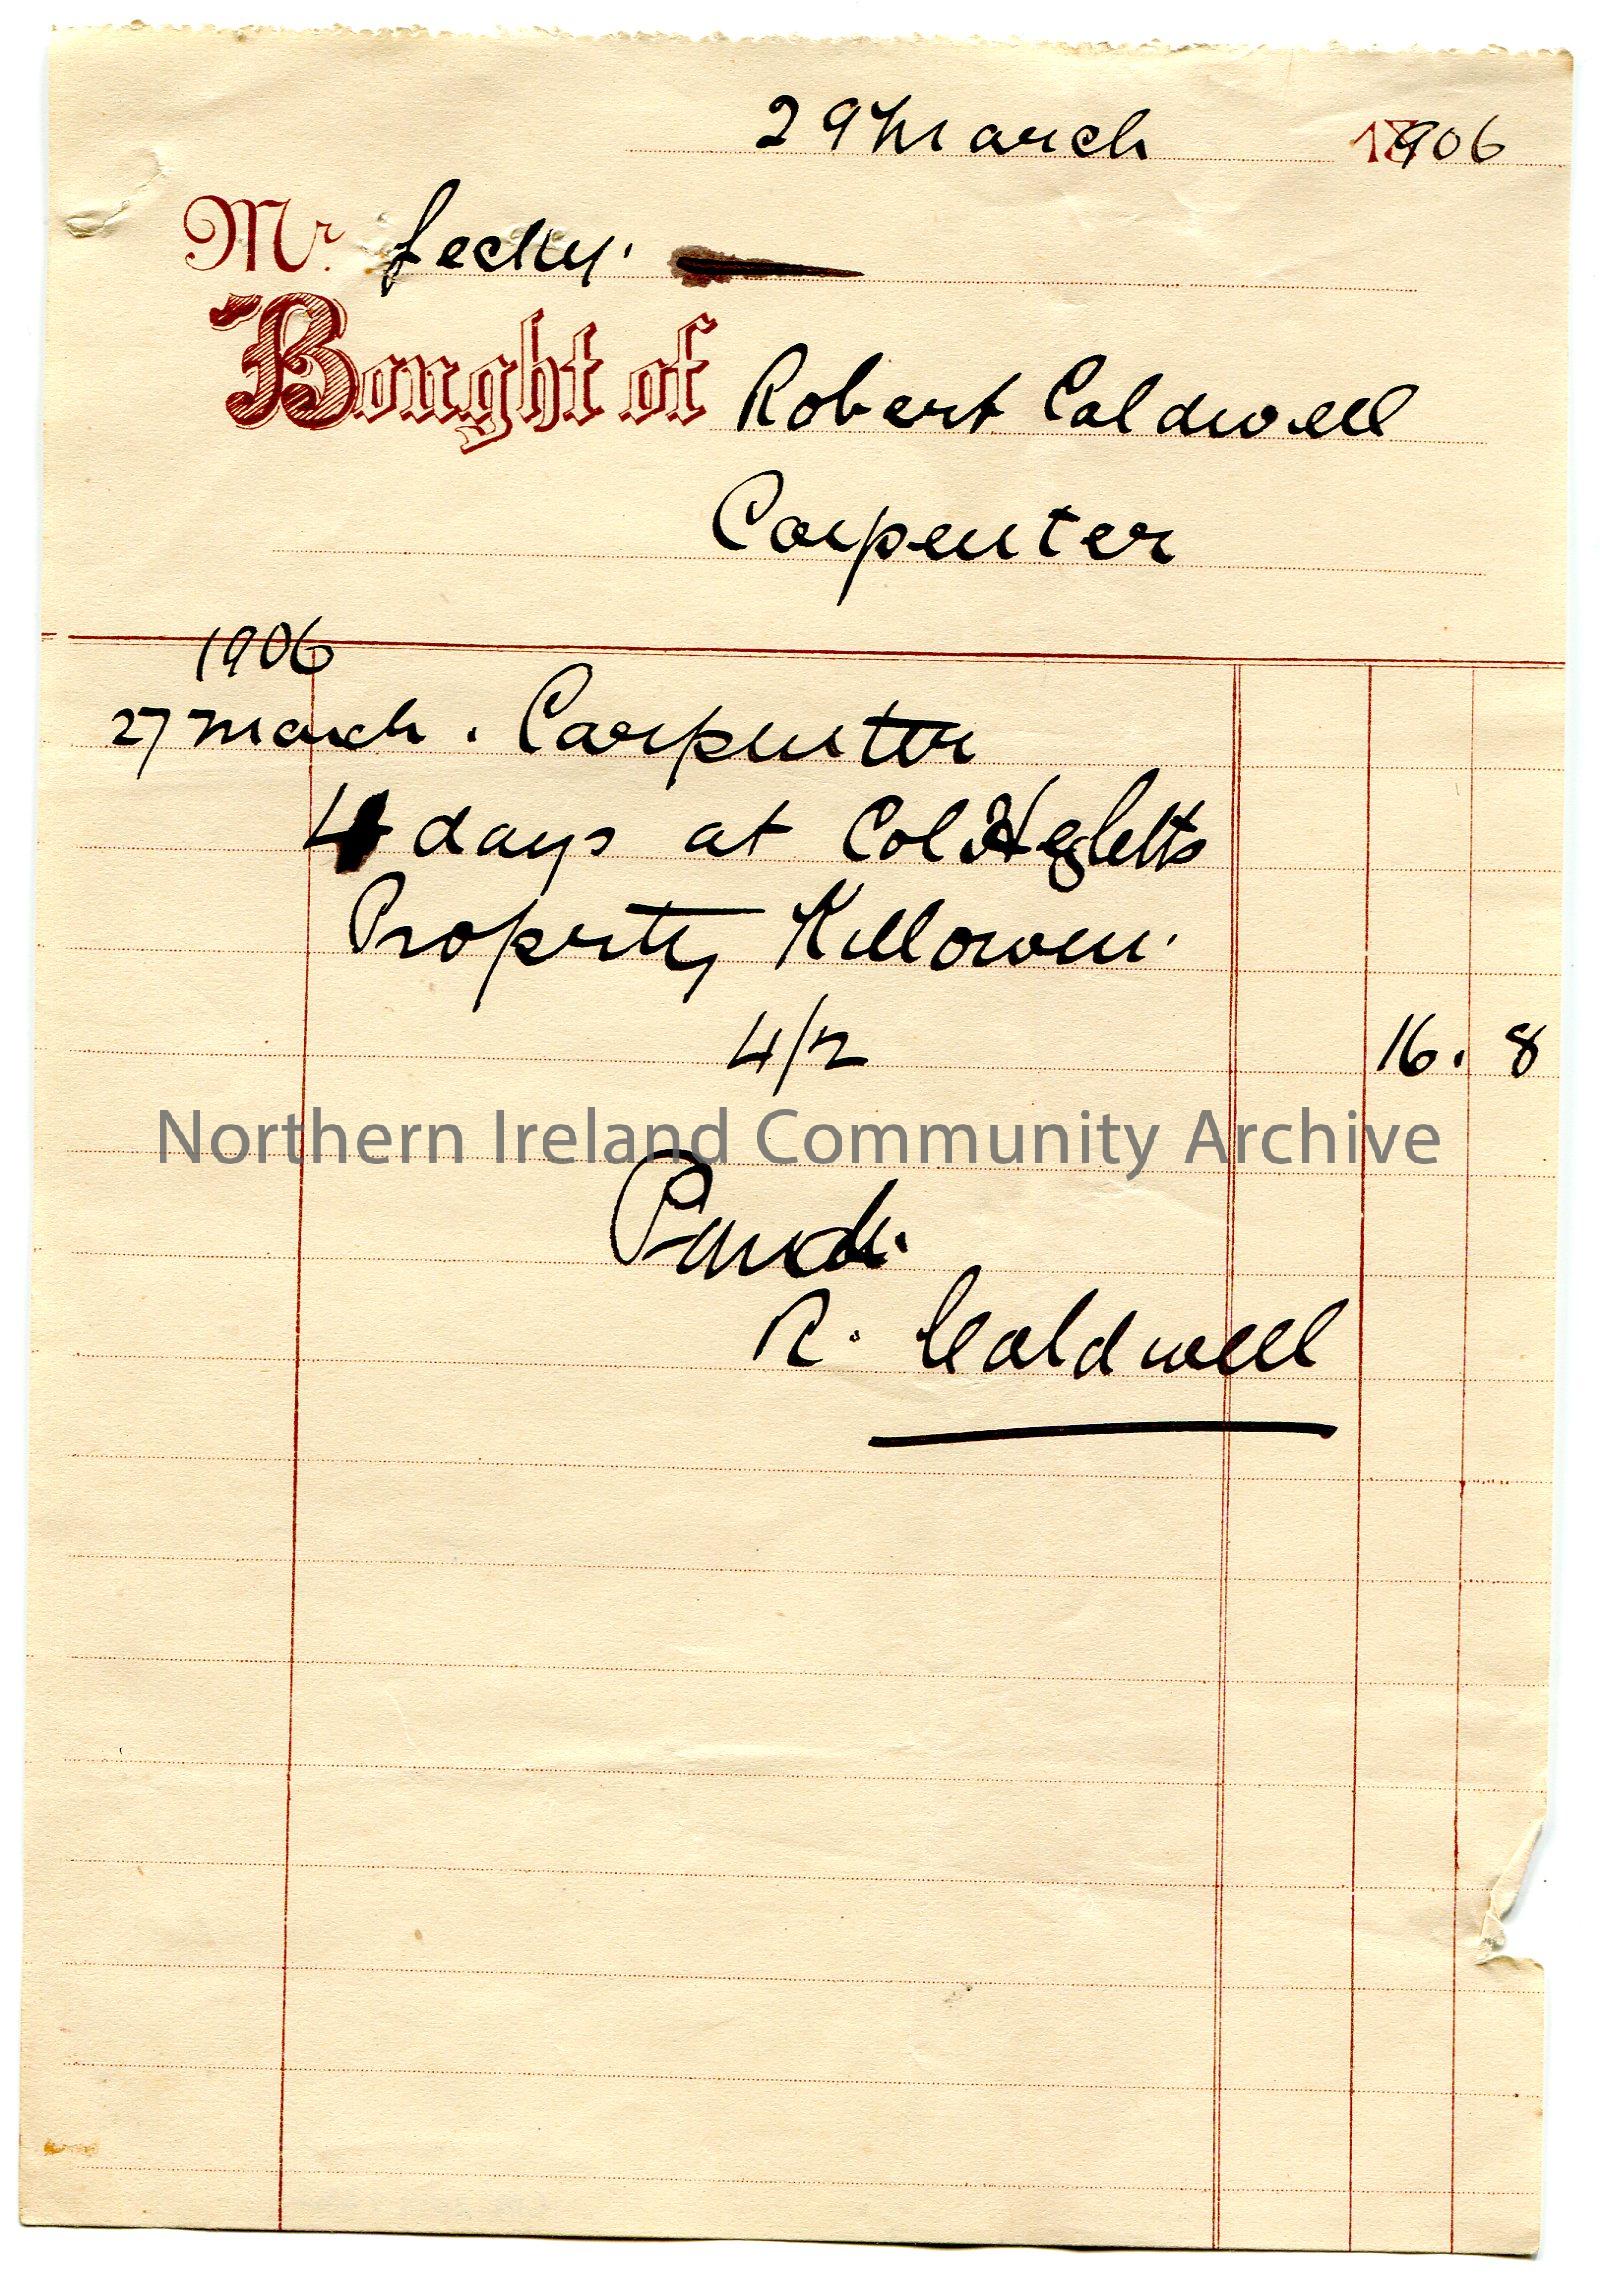 29 March 1906
Mr. Lecky.
Bought of Robert Caldwell
Carpenter
1906
27 March. Carpenter
4 days at Col Hezletts
Property Killowen.
4/2 16. 8
Northern Ireland Community Archive
Paid.
R. Caldwell